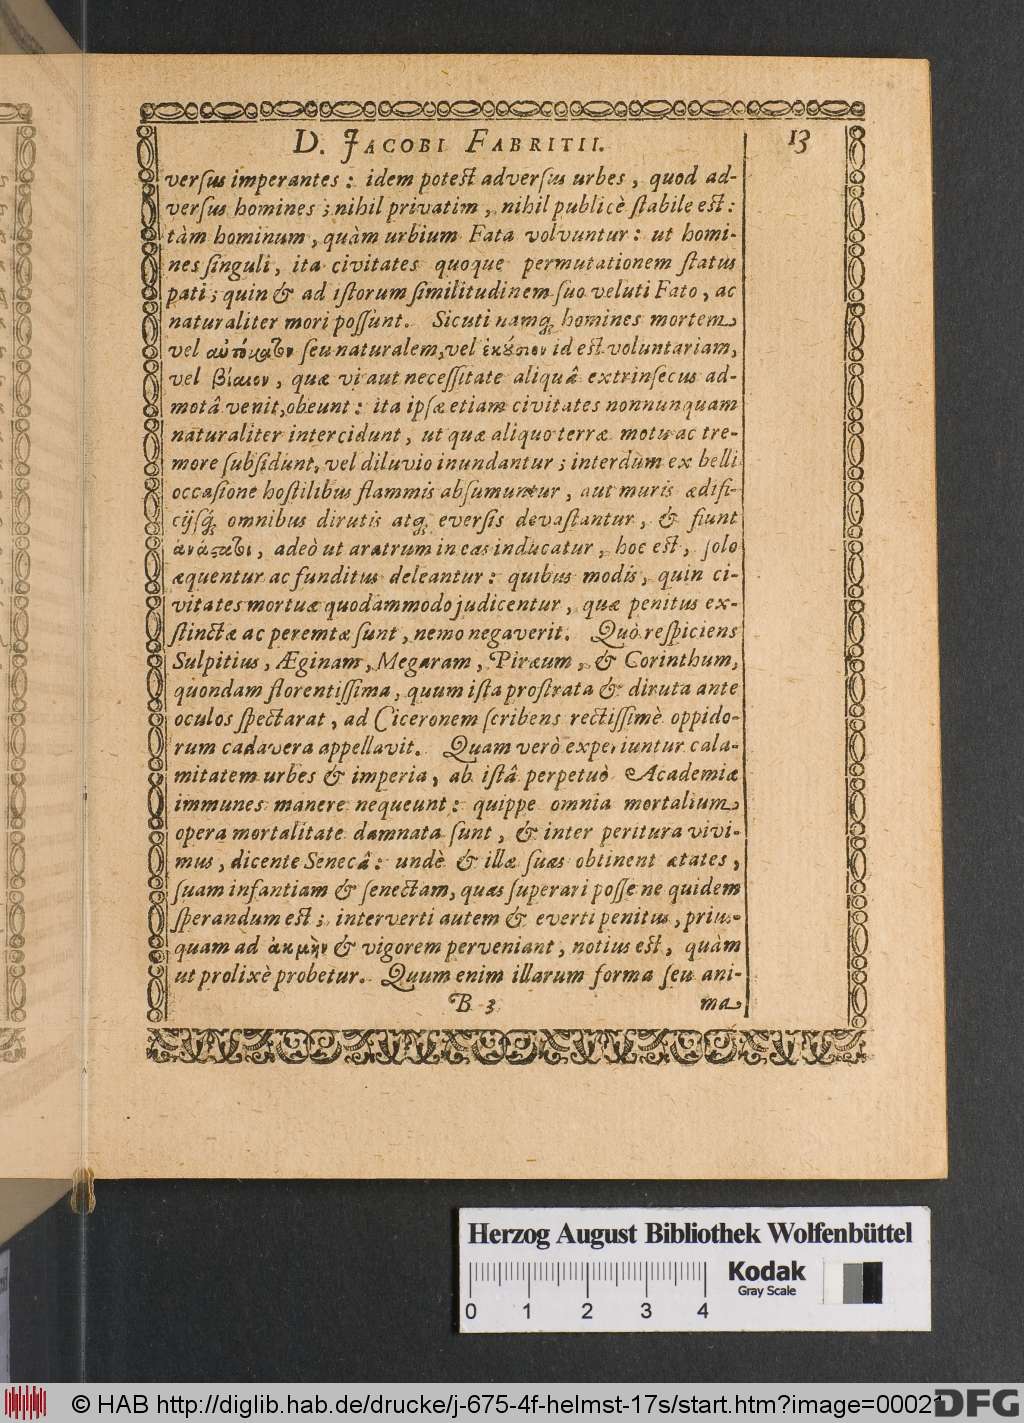 D. JACOBI FABRITII. 13
versus imperantes: idem potest adversus urbes, quod ad-
versus homines; nihil privatim, nihil publicè stabile est:
tàm hominum, quàm urbium Fata volvuntur: ut homi-
nes singuli, ita civitates quoque permutationem status
pati; quin & ad istorum similitudinem suo veluti Fato, ac
naturaliter mori possunt. Sicuti namq; homines mortem
vel αὐτόματον seu naturalem, vel ἑκούσιον id est voluntariam,
vel βίαιον, quæ vi aut necessitate aliquâ extrinsecus ad-
motâ venit, obeunt: ita ipsæ etiam civitates nonnunquam
naturaliter intercidunt, ut quæ aliquo terræ motu ac tre-
more subsidunt, vel diluvio inundantur; interdùm ex belli
occasione hostilibus flammis absumuntur, aut muris ædifi-
cijsq́; omnibus dirutis atq; eversis devastantur, & fiunt
ἀνάστατοι, adeò ut aratrum in eas inducatur, hoc est, solo
æquentur ac funditus deleantur: quibus modis, quin ci-
vitates mortuæ quodammodo judicentur, quæ penitus ex-
stinctæ ac peremtæ sunt, nemo negaverit. Quò respiciens
Sulpitius, Æginam, Megaram, Piræum, & Corinthum,
quondam florentissima, quum ista prostrata & diruta ante
oculos spectarat, ad Ciceronem scribens rectissimè oppido-
rum cadavera appellavit. Quam verò experiuntur cala-
mitatem urbes & imperia, ab istâ perpetuò Academiæ
immunes manere nequeunt: quippe omnia mortalium
opera mortalitate damnata sunt, & inter peritura vivi-
mus, dicente Senecâ: undè & illæ suas obtinent ætates,
suam infantiam & senectam, quas superari posse ne quidem
sperandum est; interverti autem & everti penitus, prius-
quam ad ἀκμὴν & vigorem perveniant, notius est, quàm
ut prolixè probetur. Quum enim illarum forma seu ani-
B 3 ma
Herzog August Bibliothek Wolfenbüttel
Kodak
Gray Scale
0 1 2 3 4
© HAB http://diglib.hab.de/drucke/j-675-4f-helmst-17s/start.htm?image=00021
DFG